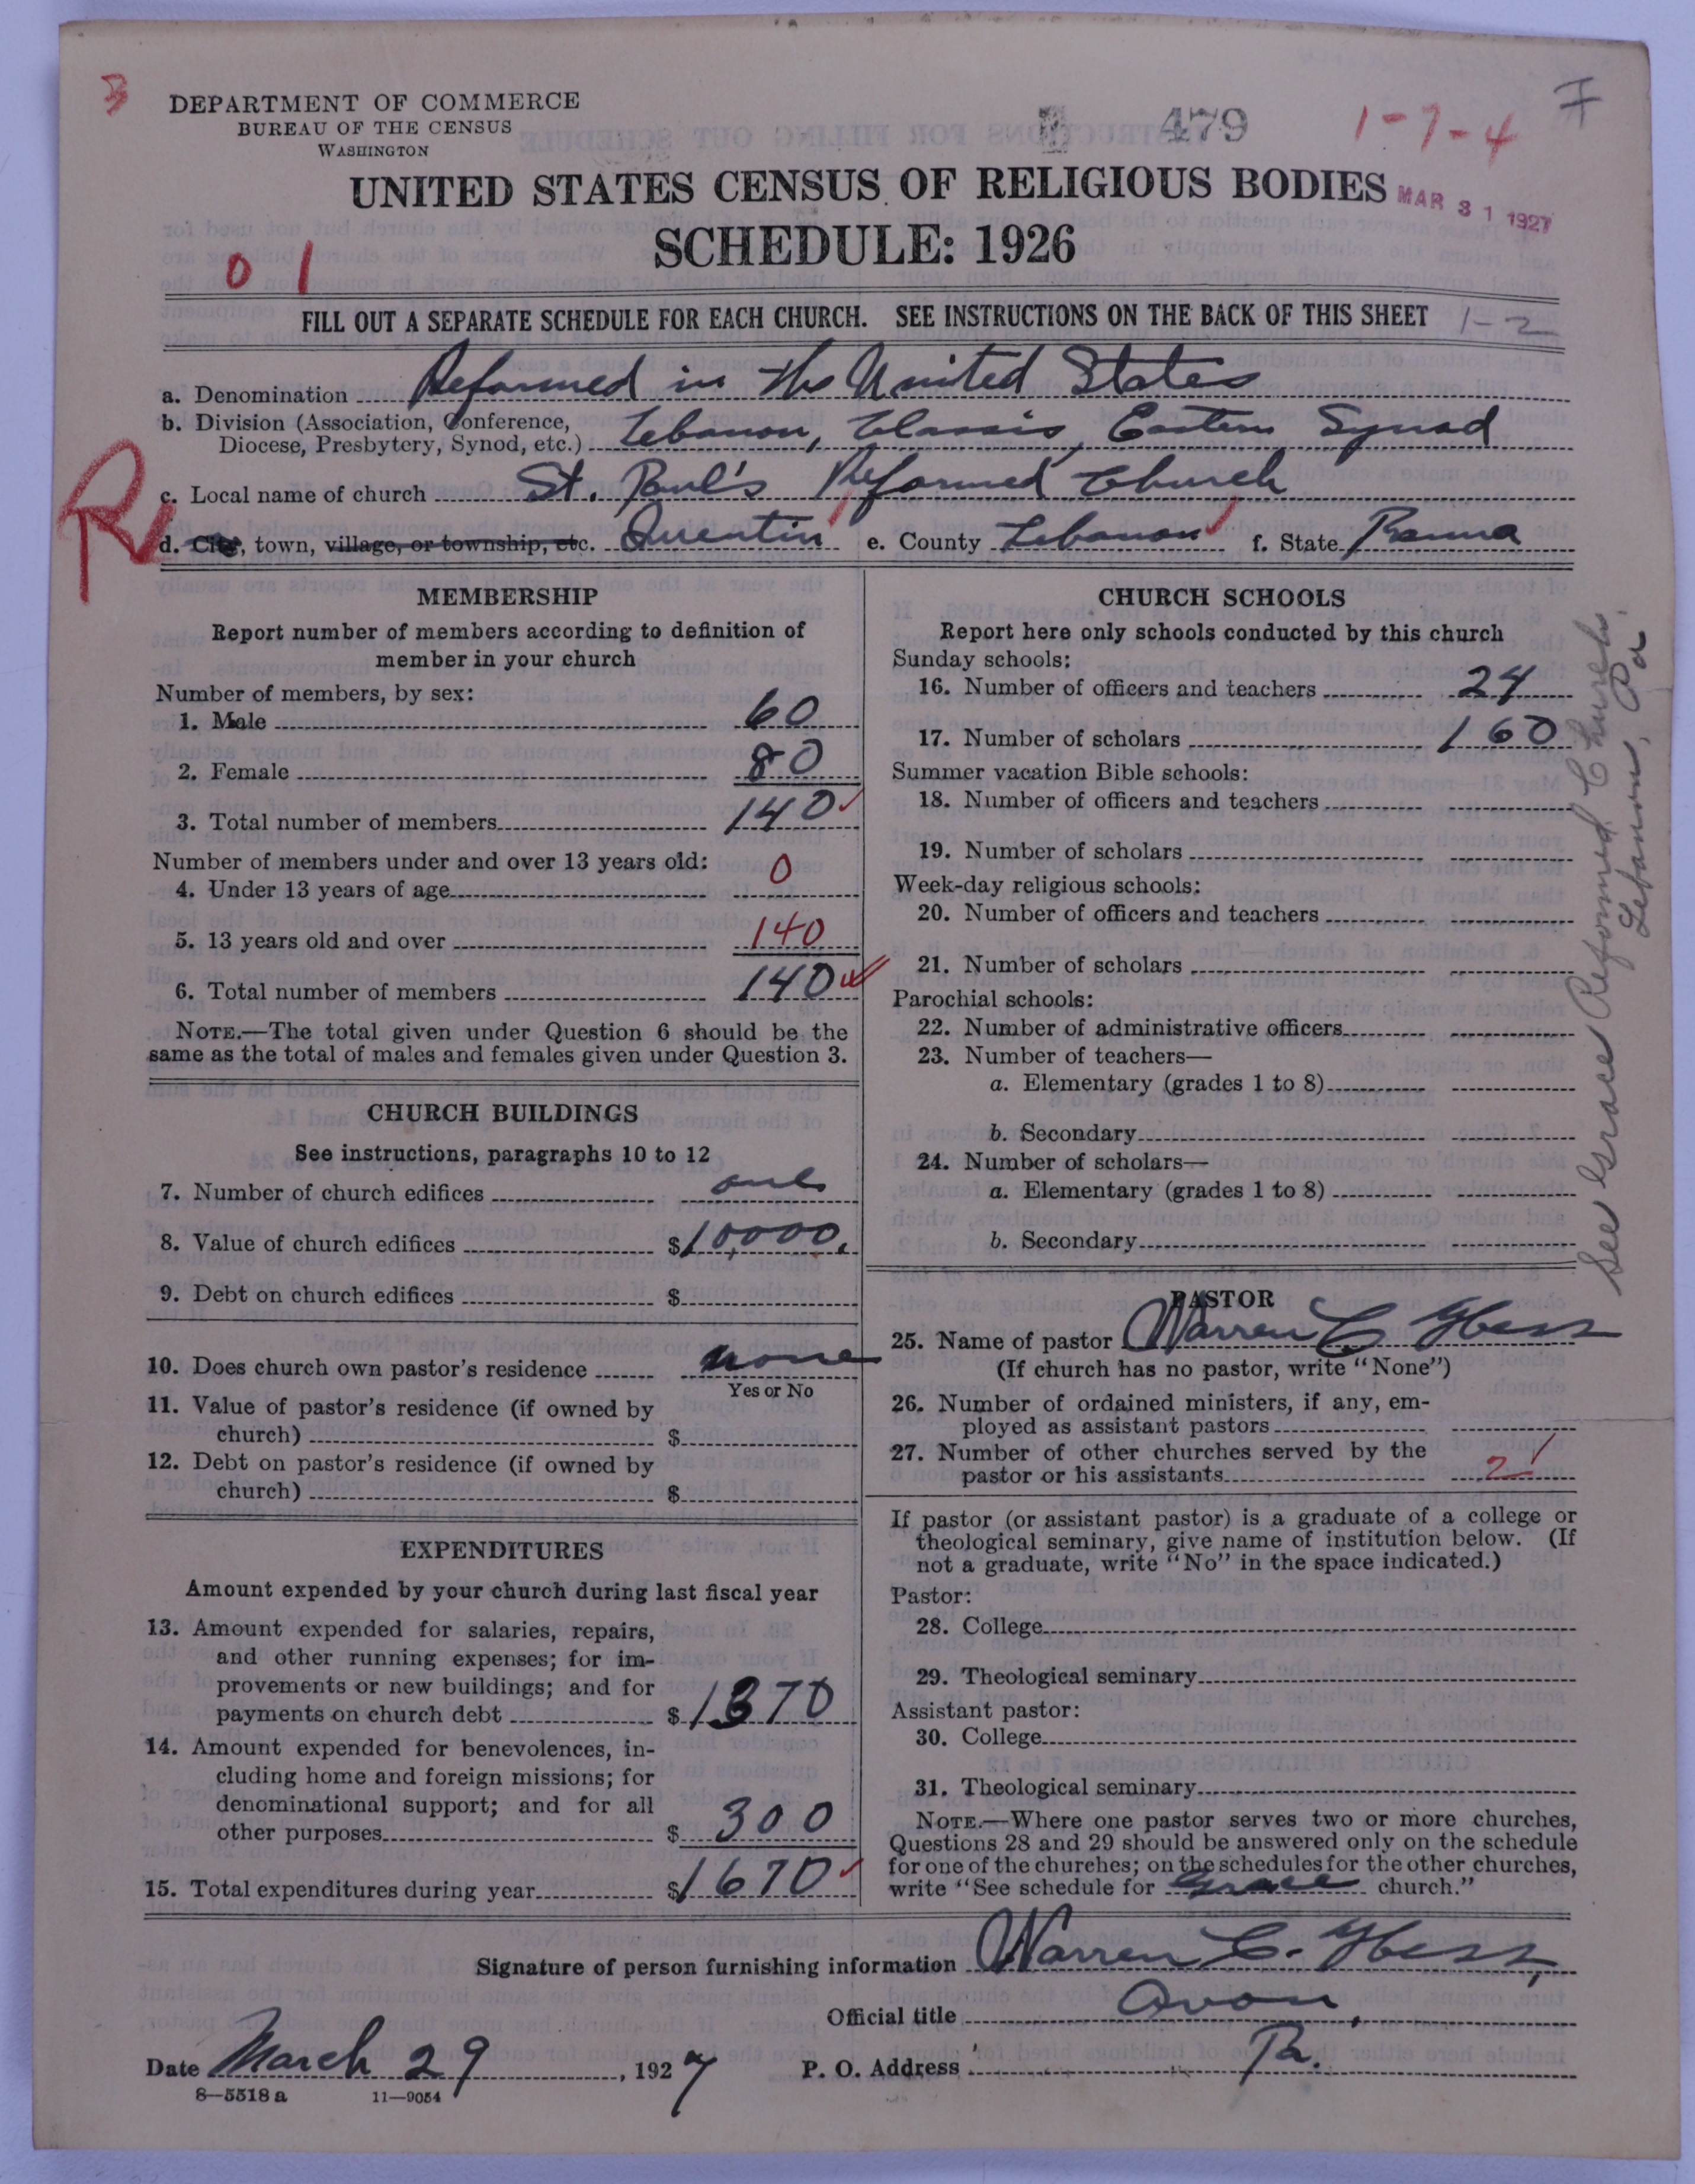 3
DEPARTMENT OF COMMERCE
BUREAU OF THE CENSUS
WASHINGTON
479
1-7-4
7
UNITED STATES CENSUS OF RELIGIOUS BODIES
MAR 31 1927
SCHEDULE: 1926
0 1
FILL OUT A SEPARATE SCHEDULE FOR EACH CHURCH. SEE INSTRUCTIONS ON THE BACK OF THIS SHEET
1-2
a. Denomination Reformed in the United States
b. Division (Association, Conference,
Diocese, Presbytery, Synod, etc.) Lebanon, Classis, Eastern Synod
c. Local name of church St. Paul's Reformed Church
R
d. City, town, village, or township, etc. Quentin e. County Lebanon f. State Penna
MEMBERSHIP
Report number of members according to definition of
member in your church
Number of members, by sex:
1. Male 60
2. Female 80
3. Total number of members 140
Number of members under and over 13 years old:
4. Under 13 years of age 0
5. 13 years old and over 140
6. Total number of members 140
NOTE.—The total given under Question 6 should be the
same as the total of males and females given under Question 3.
CHURCH BUILDINGS
See instructions, paragraphs 10 to 12
7. Number of church edifices one
8. Value of church edifices $10,000.
9. Debt on church edifices $
10. Does church own pastor's residence none
Yes or No
11. Value of pastor's residence (if owned by
church) $
12. Debt on pastor's residence (if owned by
church) $
EXPENDITURES
Amount expended by your church during last fiscal year
13. Amount expended for salaries, repairs,
and other running expenses; for im-
provements or new buildings; and for
payments on church debt $1370
14. Amount expended for benevolences, in-
cluding home and foreign missions; for
denominational support; and for all
other purposes $300
15. Total expenditures during year $1670
CHURCH SCHOOLS
Report here only schools conducted by this church
Sunday schools:
16. Number of officers and teachers 24
17. Number of scholars 160
Summer vacation Bible schools:
18. Number of officers and teachers
19. Number of scholars
Week-day religious schools:
20. Number of officers and teachers
21. Number of scholars
Parochial schools:
22. Number of administrative officers
23. Number of teachers—
a. Elementary (grades 1 to 8)
b. Secondary
24. Number of scholars—
a. Elementary (grades 1 to 8)
b. Secondary
See Grace Reformed Church
Lebanon, Pa.
PASTOR
25. Name of pastor Warren C Hess
(If church has no pastor, write "None")
26. Number of ordained ministers, if any, em-
ployed as assistant pastors
27. Number of other churches served by the
pastor or his assistants 2
If pastor (or assistant pastor) is a graduate of a college or
theological seminary, give name of institution below. (If
not a graduate, write "No" in the space indicated.)
Pastor:
28. College
29. Theological seminary
Assistant pastor:
30. College
31. Theological seminary
NOTE.—Where one pastor serves two or more churches,
Questions 28 and 29 should be answered only on the schedule
for one of the churches; on the schedules for the other churches,
write "See schedule for Grace church."
Signature of person furnishing information Warren C. Hess,
Official title Avon,
Date March 29, 1927 P. O. Address Pa.
8—5518 a 11—9054